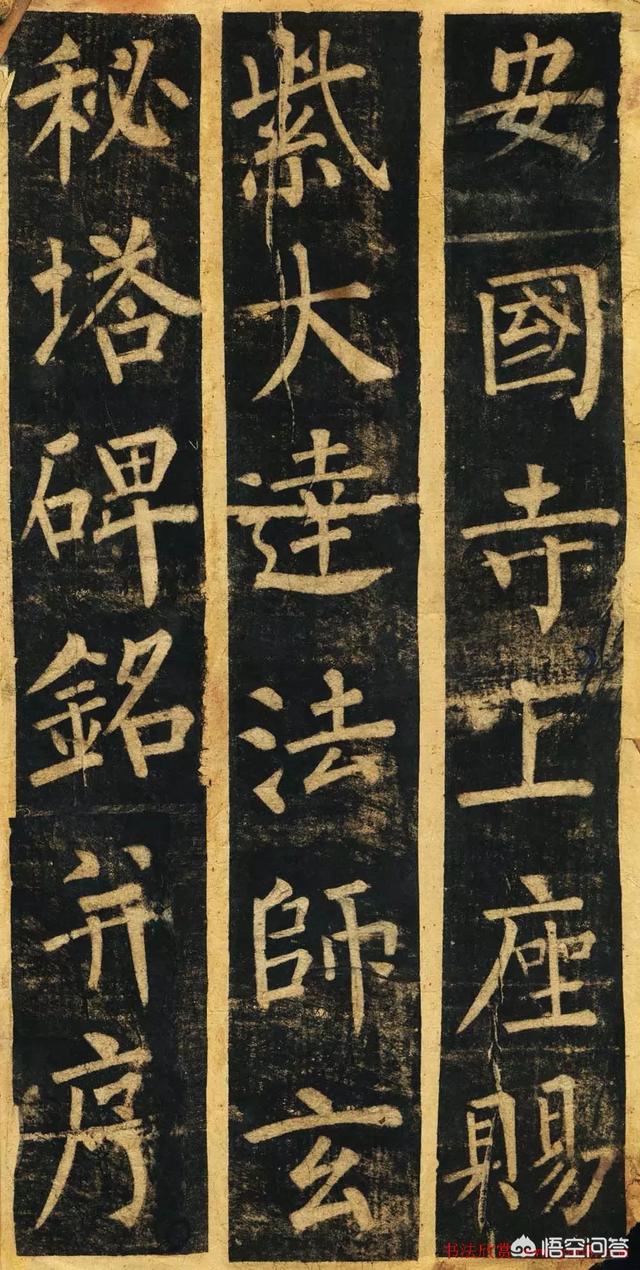 安國寺上座賜
紫大達法師玄
秘塔碑銘并序
书法欣赏
悟空问答